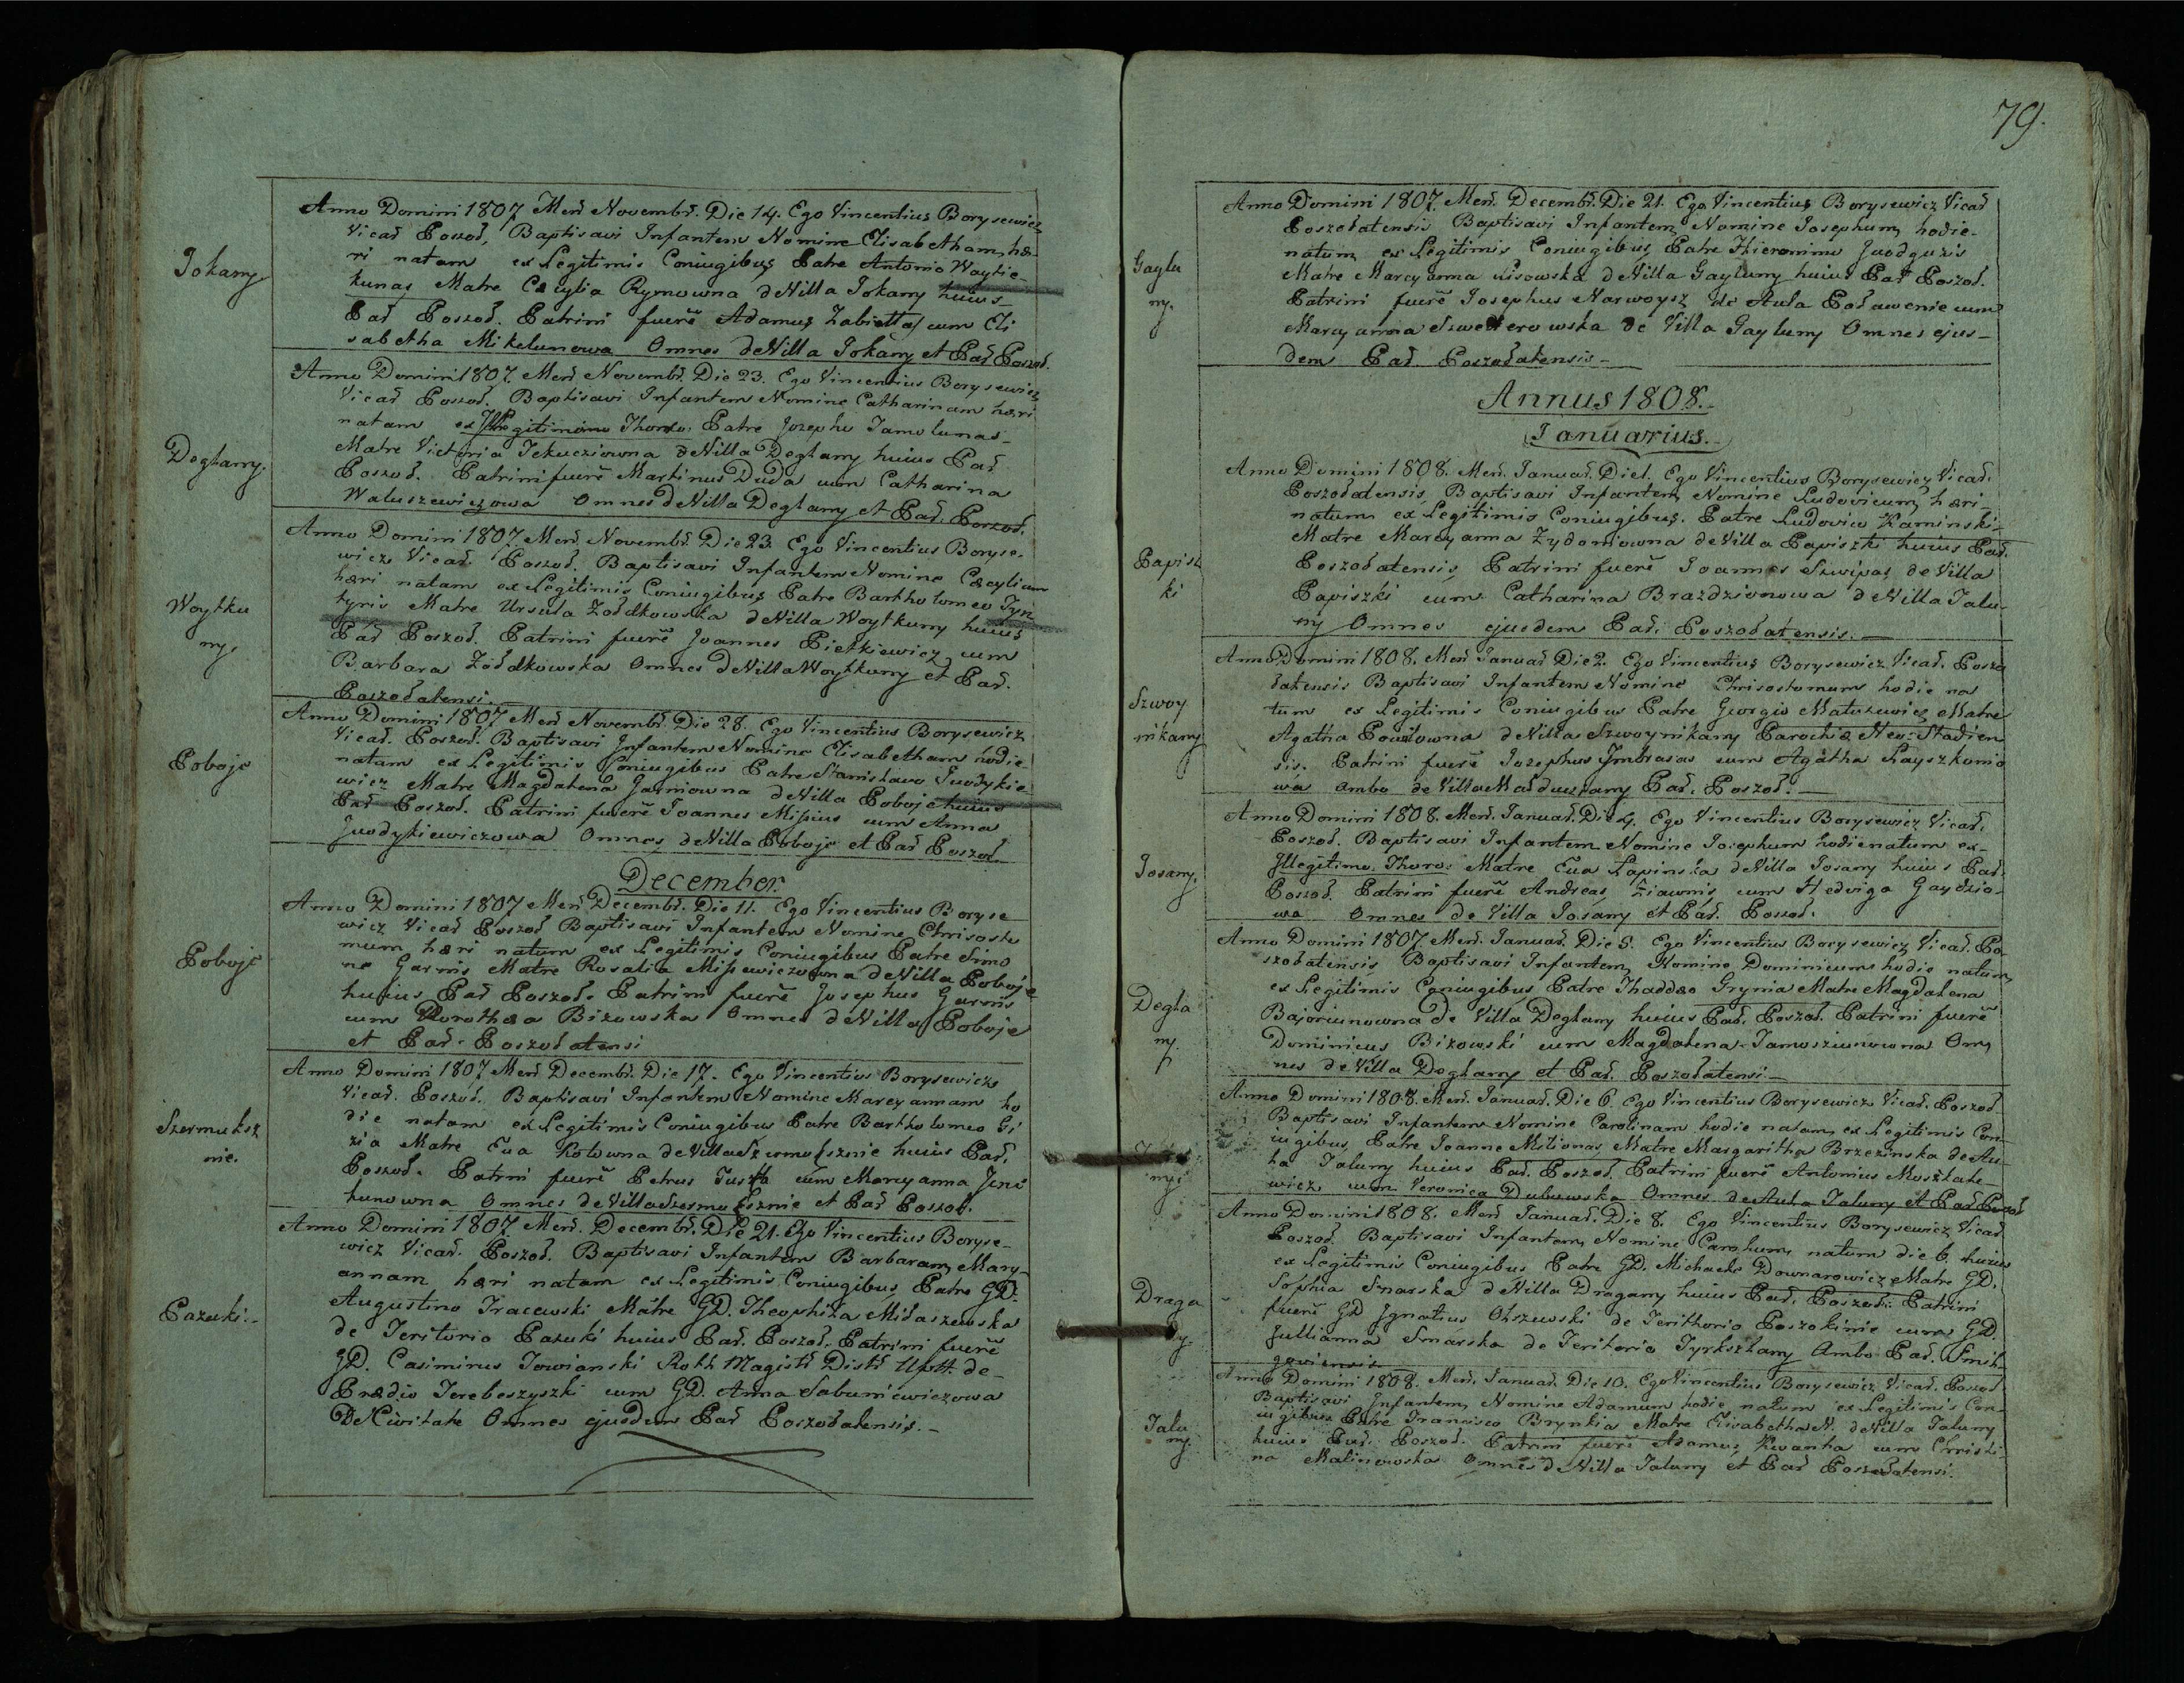 Jokany
Anno Domini 1807 Men̄ Novembr̄. Die 14. Ego Vincentius Borysewicz
Vicar̄ Poszoł, Baptisavi Infantem Nomine Elisabetham hæ-
ri natam ex Legitimis Coniugibus Patre Antonio Woytie-
kunas Matre Cæcylia Rymowna de Villa Jokany huius
Par̄ Poszoł. Patrini fuerē Adamus Zabiotta cum Eli
sabetha Mikelunowa Omnes de Villa Jokany et Par̄ Poszoł.
Degłany.
Anno Domini 1807 Men̄ Novembr̄. Die 23. Ego Vincentius Borysewicz
Vicar̄ Poszoł. Baptisavi Infantem Nomine Catharinam hæri
natam ex Thoro: Patre Josepho Jamolunas-
Matre Victoria Jekucziowna de Villa Degłany huius Par̄
Poszoł. Patrini fuerē Martinus Duda cum Catharina
Waluszewiczowa Omnes de Villa Degłany et Par̄. Poszoł.
Woytku
ny.
Anno Domini 1807 Men̄. Novembr̄. Die 23. Ego Vincentius Boryse-
wicz Vicar̄. Poszoł. Baptisavi Infantem Nomine Cæcyliam
hæri natam ex Legitimis Coniugibus Patre Bartholomeo Tyn
tyris Matre Ursula Zołdkowska de Villa Woytkuny huius
Par̄ Poszoł. Patrini fuerē Joannes Pietkiewicz cum
Barbara Zołdkowska Omnes de Villa Woytkuny et Par̄.
Poszołatensi.
Poboje
Anno Domini 1807 Men̄ Novembr̄. Die 28. Ego Vincentius Borysewicz
Vicar̄. Poszoł. Baptisavi Infantem Nomine Elisabetham hodie
natam ex Legitimis Coniugibus Patre Stanisłavo Juodykie
wicz Matre Magdalena Jarniowna de Villa Poboje huius
Par̄ Poszoł. Patrini fuerē Joannes Misius cum Anna
Juodykiewiczowa Omnes de Villa Poboje et Par̄ Poszoł.
December.
Poboje
Anno Domini 1807 Men̄ Decembr̄. Die 11. Ego Vincentius Boryse
wicz Vicar̄ Poszoł Baptisavi Infantem Nomine Chrisosto
mum hæri natum ex Legitimis Coniugibus Patre Simo
ne Garnis Matre Rosalia Misiewiczowna de Villa Poboje
huius Par̄ Poszoł. Patrini fuerē Josephus Garnis
cum Dorothæa Bizowska Omnes de Villa Poboje
et Par̄. Poszołatensi
Szermuksz
nie.
Anno Domini 1807 Men̄. Decembr̄. Die 17. Ego Vincentius Borysewicz
Vicar̄. Poszoł. Baptisavi Infantem Nomine Marcyannam ho
die natam ex Legitimis Coniugibus Patre Bartholomeo Gi
zia Matre Eua Kotowna de Villa Szermuksznie huius Par̄.
Poszoł. Patrini fuerē Petrus Juszka cum Marcyanna Jenó
kunowna Omnes de Villa Szermuksznie et Par̄ Poszoł.
Pazuki.-
Anno Domini 1807 Men̄. Decembr̄. Die 21. Ego Vincentius Boryse-
wicz Vicar̄. Poszoł. Baptisavi Infantem Barbaram Mary-
annam hæri natam ex Legitimis Coniugibus Patre GD.
Augustino Tracewski Matre GD. Theophila Midaszewska
de Teritorio Pazuki huius Par̄. Poszoł. Patrini fuerē
GD. Casimirus Jowianski Roth Magistr̄ Distr̄ Upitt. de-
Prædio Terebeszyszki cum GD. Anna Saburiewiczowa
De Civitate Omnes ejusdem Par̄ Poszołatensis.-
79.
Gaylu
ny.
Anno Domini 1807. Men̄. Decembr̄. Die 21. Ego Vincentius Borysewicz Vicar̄
Poszołatensis Baptisavi Infantem Nomine Josephum hodie-
natum ex Legitimis Coniugibus Patre Hieronimo Juodguzis
Matre Marcyanna Lisowska de Villa Gayluny huius Par̄ Poszoł.
Patrini fuerē Josephus Narwoysz de Aula Poławenie cum
Marcyanna Szwetterowska de Villa Gayluny Omnes ejus-
dem Par̄ Poszołatensis-
Annus 1808.-
Januarius.-
Papisz
ki
Anno Domini 1808. Men̄. Januar̄. Die 1. Ego Vincentius Borysewicz Vicar̄.
Poszołatensis Baptisavi Infantem Nomine Ludovicum hæri-
natum ex Legitimis Coniugibus. Patre Ludovico Kaminski
Matre Marcyanna Zydoniowna de Villa Papiszki huius Par̄.
Poszołatensis Patrini fuerē Joannes Szwipas de Villa
Papiszki cum Catharina Brazdzionowa de Villa Jalu-
ny Omnes ejusdem Par̄. Poszołatensis.-
Szwoy
nikany
Anno Domini 1808. Men̄ Januar̄ Die 2. Ego Vincentius Borysewicz Vicar̄. Poszo
łatensis Baptisavi Infantem Nomine Chrisostomum hodie na
tum ex Legitimis Coniugibus Patre Georgio Matuzewicz Matre
Agatha Powilowna de Villa Szwoynikany Parochiæ Neo-Stadien
sis. Patrini fuerē Josephus Jmbrasas cum Agatha Layszkonio
wa Ambo de Villa Małduczany Par̄. Poszoł.-
Josany.
Anno Domini 1808. Men̄. Januar̄. Die 4. Ego Vincentius Borysewicz Vicar̄.
Poszoł. Baptisavi Infantem Nomine Josephum hodie natum ex-
Jllegitimo. Thoro: Matre Eua Łapinska de Villa Josany huius Par̄.
Poszoł. Patrini fuerē Andreas Ziawnis cum Hedviga Gaydzio-
wa Omnes de Villa Josany et Par̄. Poszoł.
Degła
ny.
Anno Domini 1807. Men̄. Januar̄. Die 5. Ego Vincentius Borysewicz Vicar̄. Po-
szołatensis Baptisavi Infantem Nomine Dominicum hodie natum
ex Legitimis Coniugibus Patre Thaddæo Grynia Matre Magdalena
Bajoriunowna de Villa Degłany huius Par̄. Poszoł. Patrini fuerē
Dominicus Bizowski cum Magdalena Jamosziunowna Om
nes de Villa Degłany et Par̄. Poszołatensi-
ny.
Anno Domini 1808. Men̄. Januar̄. Die 6. Ego Vincentius Borysewicz Vicar̄. Poszoł
Baptisavi Infantem Nomine Carolinam hodie natam ex Legitimis Con-
iugibus Patre Joanne Milionas Matre Margaritha Brzezinska de Au-
la Jaluny huius Par̄. Poszoł. Patrini fuerē Antonius Moszkate-
wicz cum Veronica Dubowska Omnes de Aula Jaluny et Par̄ Poszoł
Draga
ny.
Anno Domini 1808. Men̄ Januar̄. Die 8. Ego Vincentius Borysewicz Vicar̄
Poszoł. Baptisavi Infantem Nomine Carolum natum die 6. huius
ex Legitimis Coniugibus Patre GD. Michaele Downarowicz Matre GD.
Sophia Snarska de Villa Dragany huius Par̄. Poszoł. Patrini
fuerē GD Jgnatius Olszewski de Terithorio Poszokinie cum GD.
Jullianna Snarska de Teritorio Tyrkszlany Ambo Par̄. Smil-
gowiensis
Jalu
ny.
Anno Domini 1808. Men̄. Januar̄. Die 10. Ego Vincentius Borysewicz Vicar̄. Poszoł
Baptisavi Infantem Nomine Adamum hodie natum ex Legitimis Con-
iugibus Patre Francisco Brynkia Matre Elisabetha N. de Villa Jaluny
huius Par̄. Poszoł. Patrini fuerē Adamus Kwanka cum Christi
na Malinowska Omnes de Villa Jaluny et Par̄ Poszołatensi.